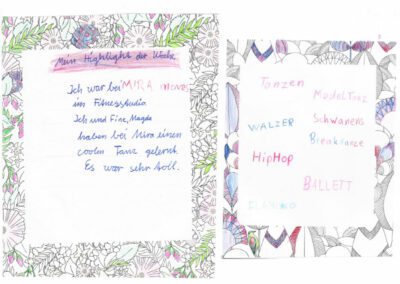 Mein Highlight der Woche
Ich war bei MIRA
im Fitnessstudio
Ich und Fine, Magda
haben bei Mira einen
coolen Tanz gelernt.
Es war sehr toll.
Tanzen
WALZER
Schwanens
Breakdance
HipHop
BALLETT